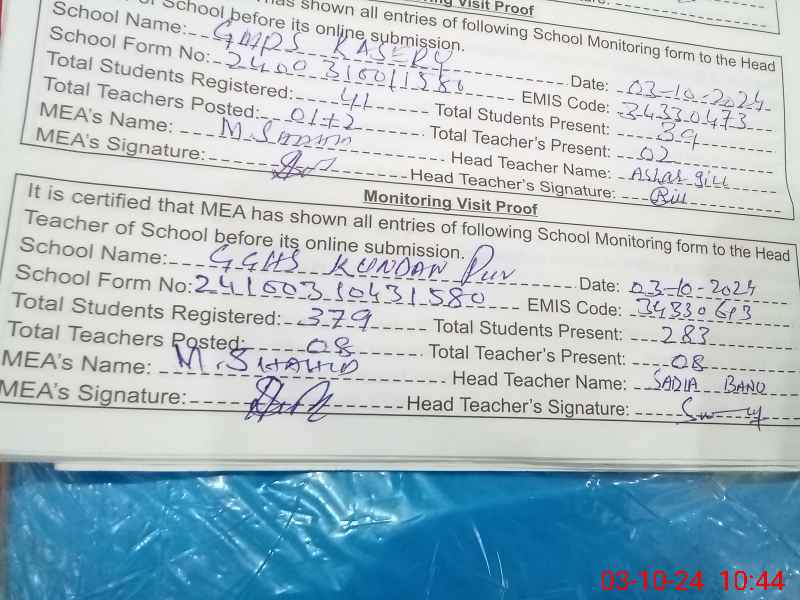 Monitoring Visit Proof
has shown all entries of following School Monitoring form to the Head
of School before its online submission.
School Name: GMPS KASERY Date: 03-10-2024
School Form No: EMIS Code: 34330473
Total Students Registered: 41 Total Students Present: 39
Total Teachers Posted: 01+2 Total Teacher's Present: 02
MEA's Name: Head Teacher Name: Ashar Gill
MEA's Signature: Head Teacher's Signature: Gill
Monitoring Visit Proof
It is certified that MEA has shown all entries of following School Monitoring form to the Head
Teacher of School before its online submission.
School Name: GGHS KUNDAN Pur Date: 03-10-2024
School Form No: 24100310431580 EMIS Code: 34330613
Total Students Registered: 379 Total Students Present: 283
Total Teachers Posted: 08 Total Teacher's Present: 08
MEA's Name: M. SHAHID Head Teacher Name: SADIA BANO
MEA's Signature: Head Teacher's Signature:
03-10-24 10:44